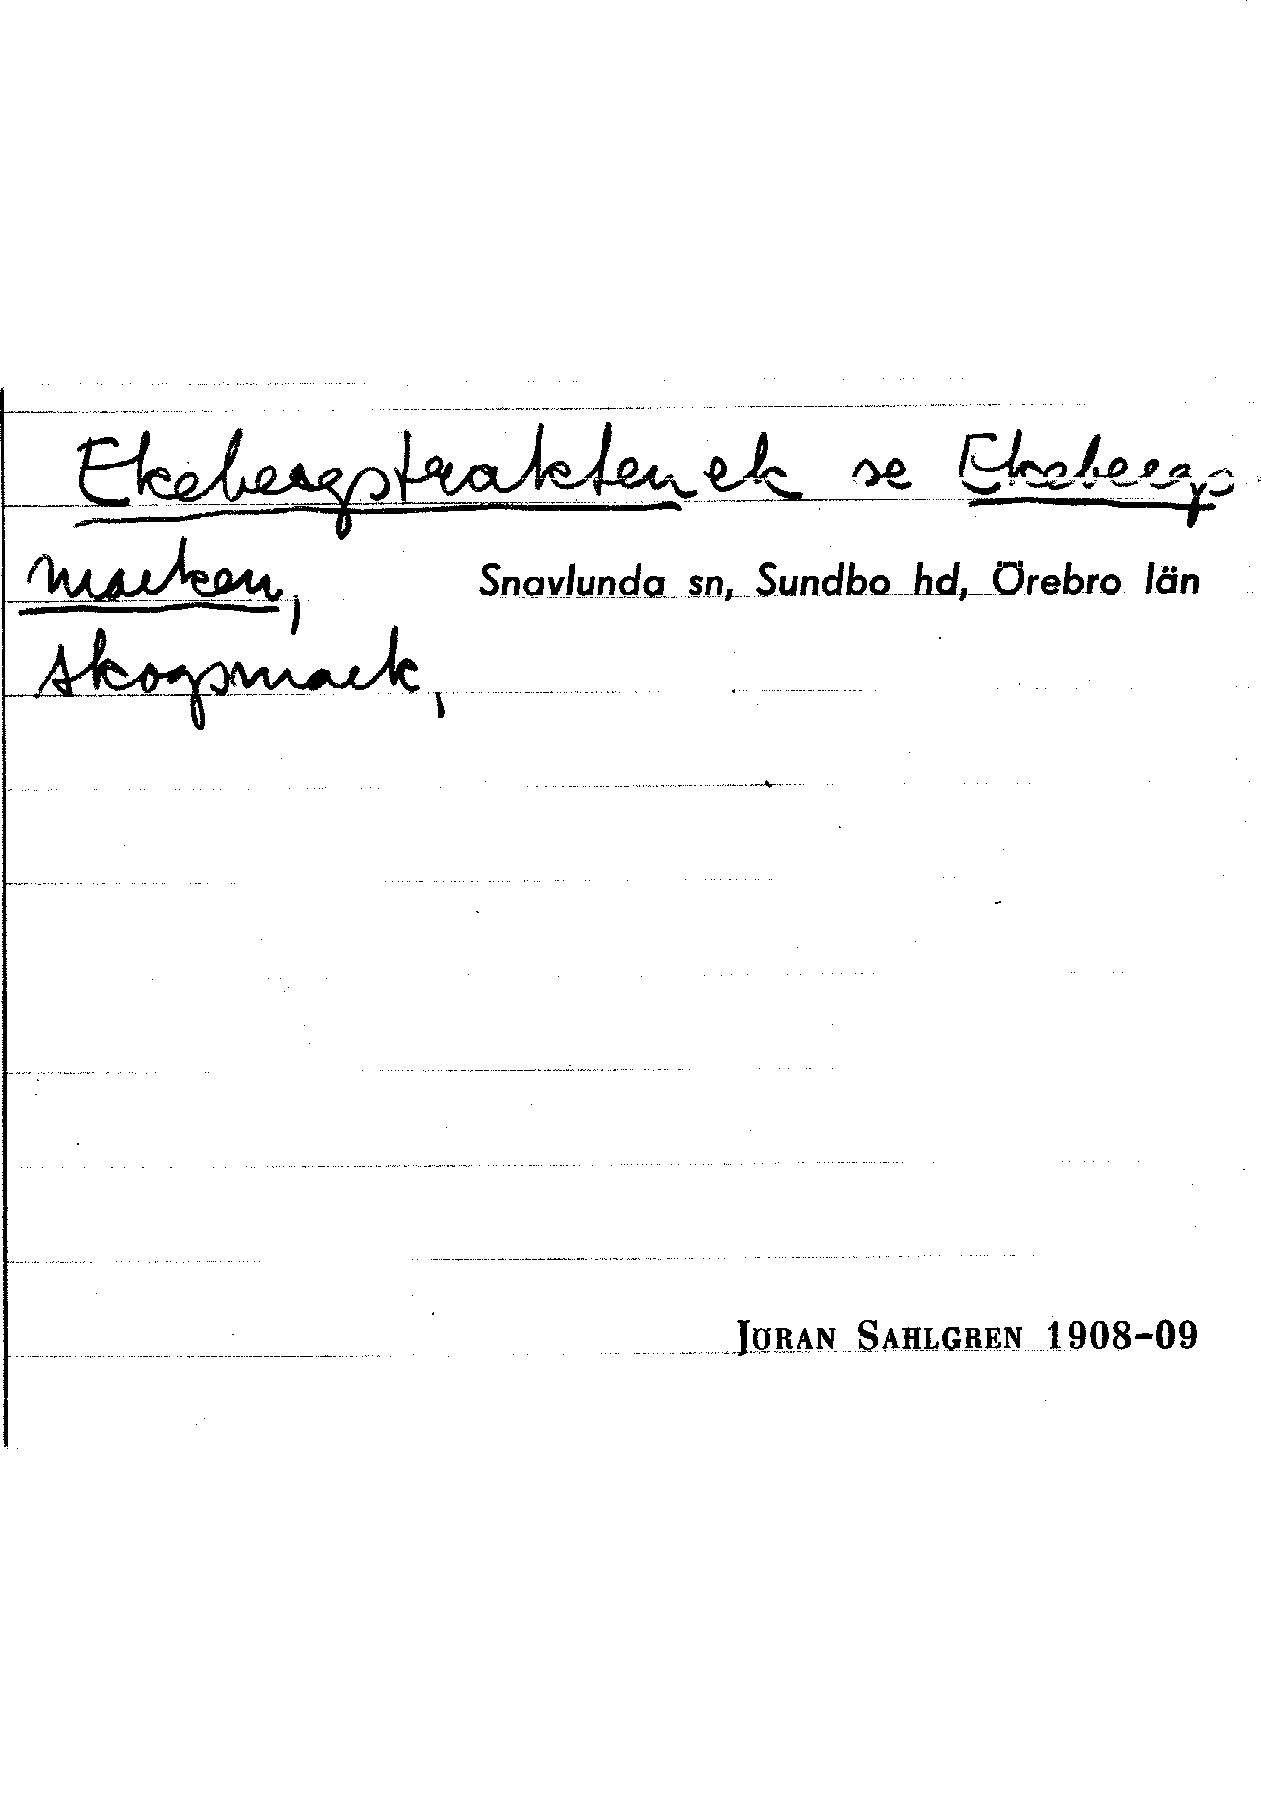 Ekebergstrakten ek se Ekebergs
marken, Snavlunda sn, Sundbo hd, Örebro län
skogsmark,
JÖRAN SAHLGREN 1908-09